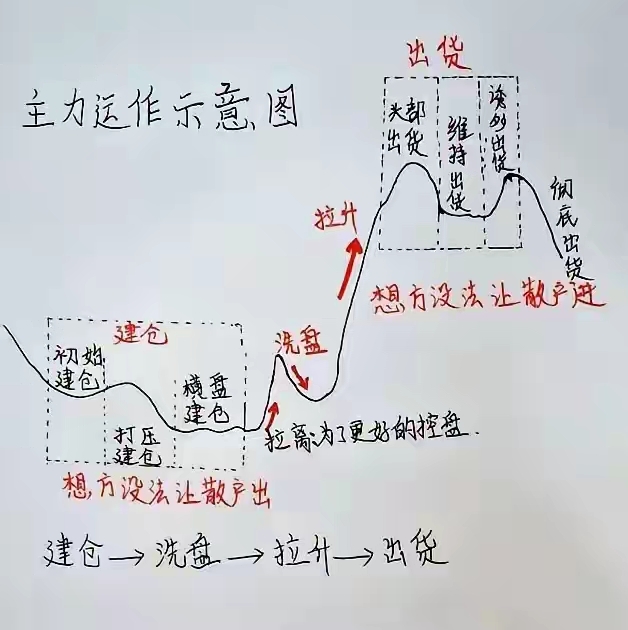 主力运作示意图
出货
头部
出货
维持出货
诱多出货
彻底出货
拉升
想方没法让散户进
建仓
初始
建仓
打压
建仓
横盘
建仓
洗盘
拉离为了更好的控盘.
想方没法让散户出
建仓→洗盘→拉升→出货